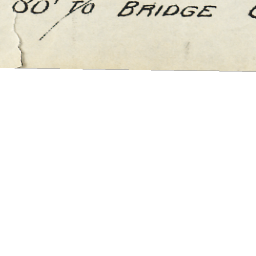 00' TO BRIDGE